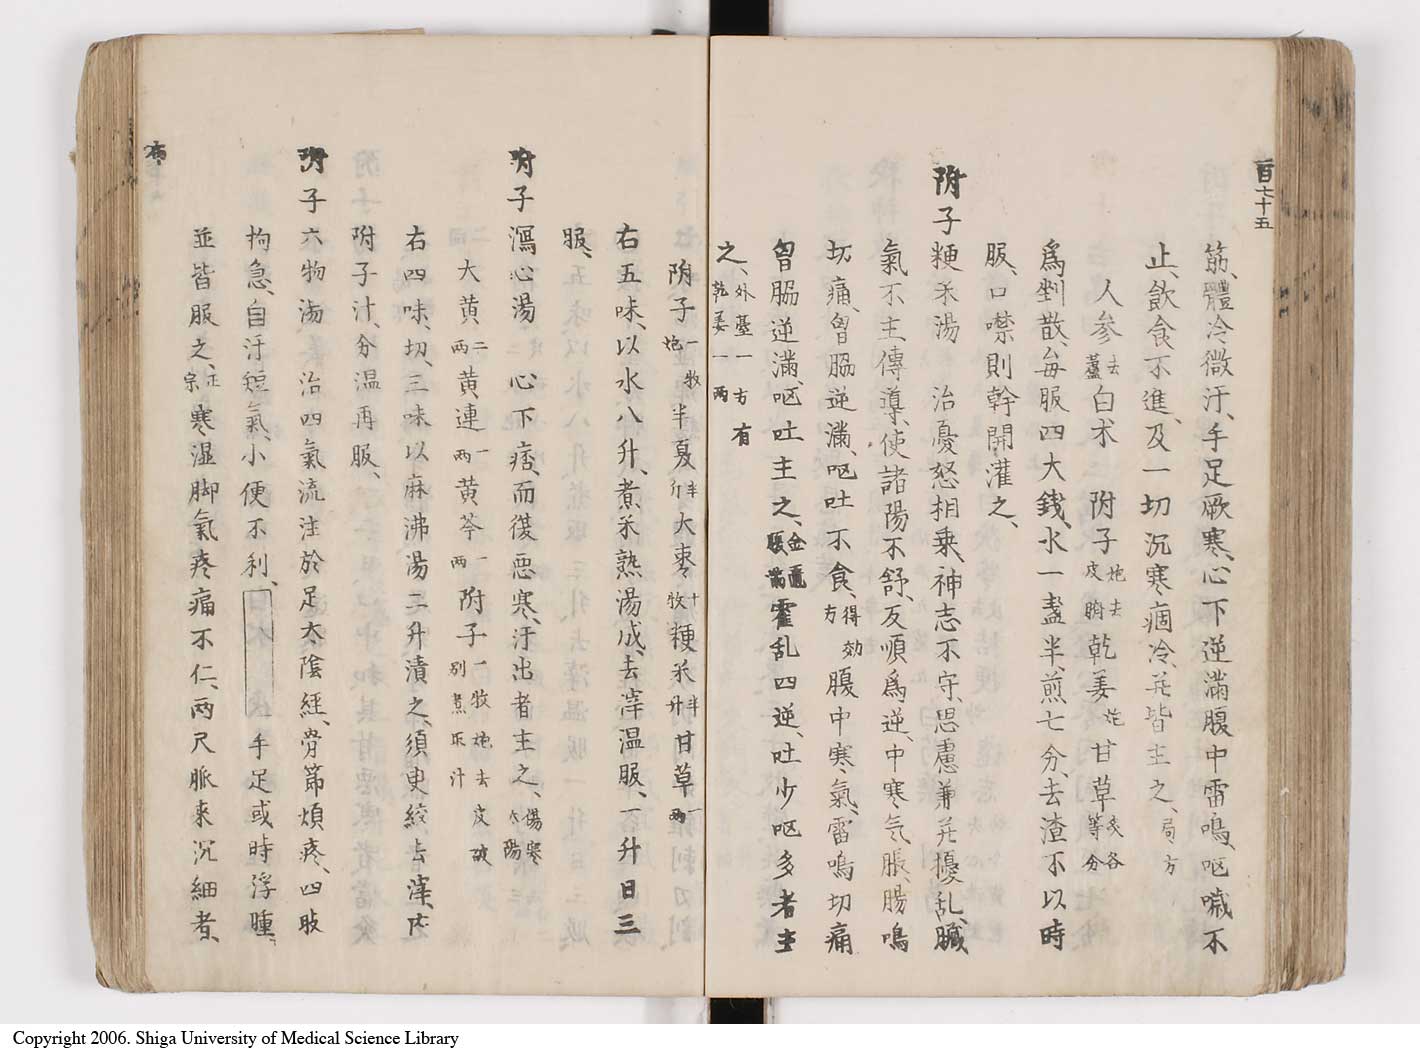 百七十五
筋、體冷微汗、手足厥寒、心下逆滿、腹中雷鳴、呕噦不
止、飲食不進、及一切沉寒痼冷、並皆主之、局方
人参去蘆白术 附子炮去皮臍乾姜炮甘草炙各等分
爲剉散、每服四大錢、水一盞半、煎七分、去渣不以時
服、口噤則幹開灌之、
附子粳米湯 治憂怒相乗、神志不守、思慮兼並擾乱、臓
氣不主傳導、使諸陽不舒、反順爲逆、中寒气、脹、腸鳴
切痛、胷脇逆滿、呕吐不食、得効方腹中寒氣、雷鳴切痛
胷脇逆滿、呕吐主之、金匱腹滿霍乱四逆、吐少呕多者主
之、外臺一方有乾姜一兩
附子一牧炮半夏半升大棗十牧粳米半升甘草一兩
右五味、以水八升、煮米熟湯成、去滓温服、一升日三
服、
附子瀉心湯 心下痞、而復恶寒、汗出者主之、傷寒太陽
大黄二兩黄連一兩黄芩一兩附子一牧炮去皮破別煮取汁
右四味、切、三味以麻沸湯二升漬之須臾絞去滓、内
附子汁、分温再服、
附子六物湯 治四氣流注於足太陰經、骨節煩疼、四肢
拘急、自汗短氣、小便不利、手足或時浮腫、
並皆服之、正宗寒湿脚氣疼痛不仁、两尺脈来沉細者、
布